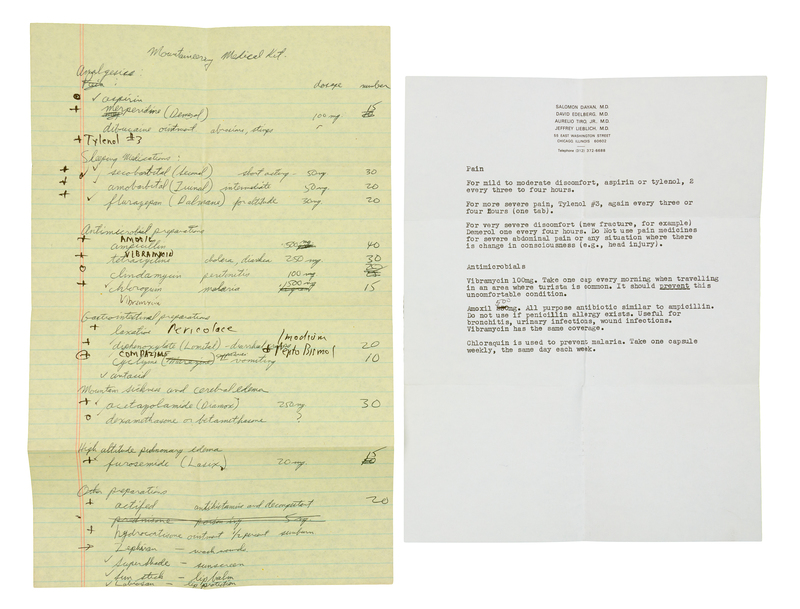 Mountaineering Medical Kit.
Analgesics:
Pain: dosage number
aspirin
meperidine (Demerol) 100 mg 15
dibucaine ointment abrasions, stings
Tylenol #3
Sleeping Medications:
secobarbital (Seconal) short acting 50mg 30
amobarbital (Tuinal) intermediate 50mg 20
flurazepam (Dalmane) for altitude 30mg 20
Antimicrobial preparations
AMOXIL
ampicillin 500 40
VIBRAMYCIN
tetracycline cholera, diarrhea 250 mg. 30
clindamycin peritonitis 100 mg
chloroquin malaria 500mg 15
Vibramycin
Gastrointestinal preparations
laxative Pericolace
Imodium
diphenoxylate (Lomotil) - diarrhea Pepto Bismol 20
COMPAZINE
cyclizine vomiting 10
antacid
Mountain sickness and cerebral edema
acetazolamide (Diamox) 250mg 30
dexamethasone or betamethasone ?
High altitude pulmonary edema
furosemide (Lasix) 20mg 15
Other preparations
actifed antihistamine and decongestant 20
prednisone poison ivy 5mg.
hydrocortisone ointment 1/2 percent sunburn
Zephiran - wash wounds
SuperShade - sunscreen
Sun stick - lip balm
Labiosan - lip protection
SALOMON DAYAN, M.D.
DAVID EDELBERG, M.D.
AURELIO TIRO JR., M.D.
JEFFREY LIEBLICH, M.D.
55 EAST WASHINGTON STREET
CHICAGO, ILLINOIS 60602
Telephone (312) 372-6688
Pain
For mild to moderate discomfort, aspirin or tylenol, 2
every three to four hours.
For more severe pain, Tylenol #3, again every three or
four Hours (one tab).
For very severe discomfort (new fracture, for example)
Demerol one every four hours. Do Not use pain medicines
for severe abdominal pain or any situation where there
is change in consciousness (e.g., head injury).
Antimicrobials
Vibramycin 100mg. Take one cap every morning when travelling
in an area where turista is common. It should prevent this
uncomfortable condition.
500
Amoxil mg. All purpose antibiotic similar to ampicillin.
Do not use if penicillin allergy exists. Useful for
bronchitis, urinary infections, wound infections.
Vibramycin has the same coverage.
Chloraquin is used to prevent malaria. Take one capsule
weekly, the same day each week.